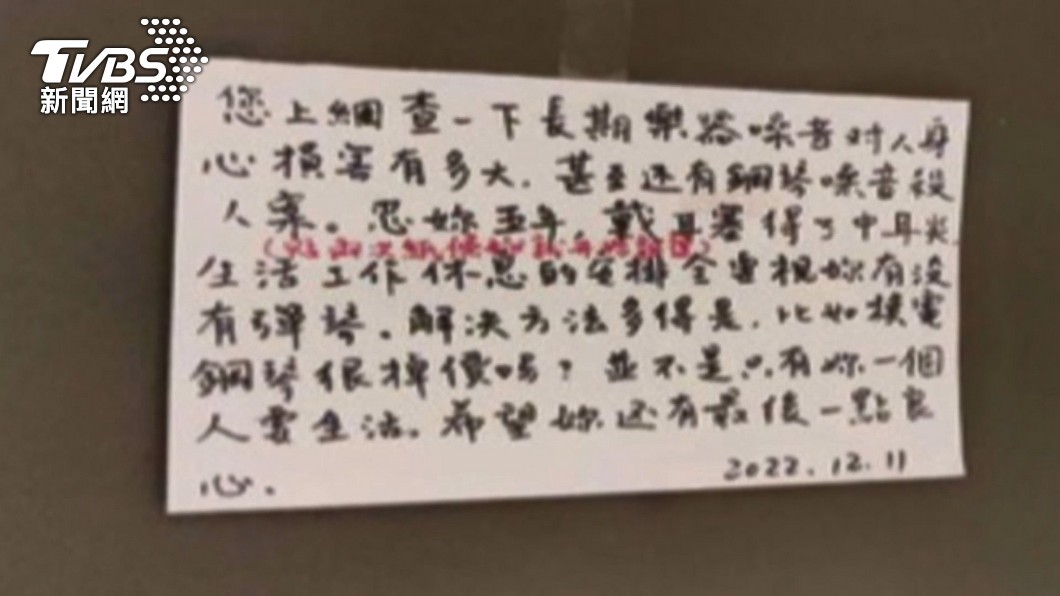 TVBS
新聞網
您上網查一下長期樂器噪音对人身
心損害有多大，甚至还有鋼琴噪音殺
人案。忍妳五年，戴耳塞得了中耳炎，
生活工作休息的安排全憑視妳有沒
有彈琴。解決方法多得是，比如換電
鋼琴很掉價嗎？並不是只有妳一個
人要生活。希望妳还有最後一點良
心。
2022.12.11